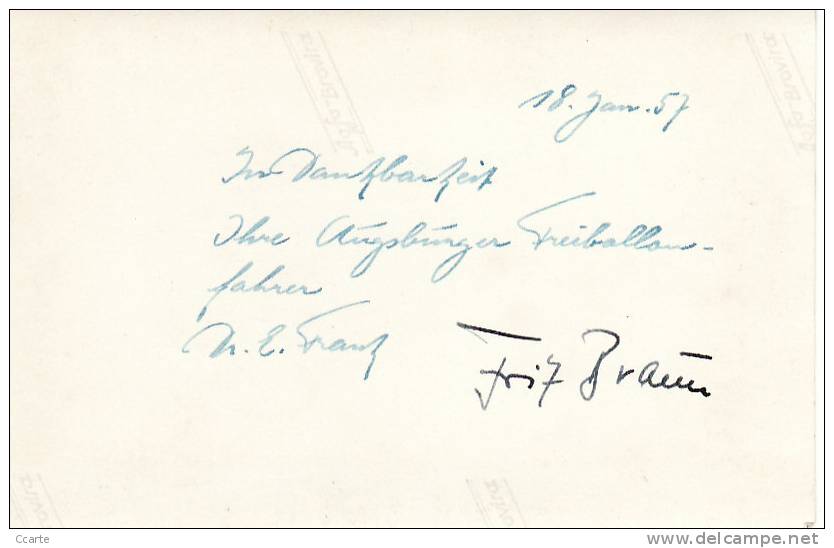 18. Jan. 57
In Dankbarkeit
Ihre Augsburger Freiballon-
fahrer
E. Frank
Fritz Braun
Agfa-Brovira
Agfa-Brovira
ovira
ovira
Ccarte
delcampe.net